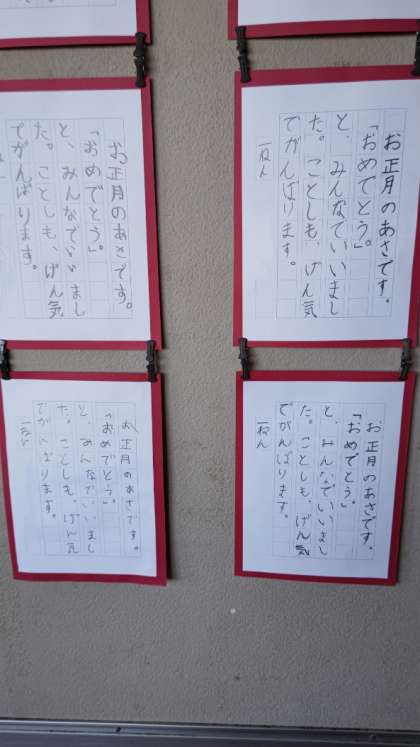 お正月のあさです。
「おめでとう。」
と、みんなでいいまし
た。ことしも、げん気
でがんばります。
一ねん
お正月のあさです。
「おめでとう。」
と、みんなでいいまし
た。ことしも、げん気
でがんばります。
お正月のあさです。
「おめでとう。」
と、みんなでいいまし
た。ことしも、げん気
でがんばります。
一ねん
お正月のあさです。
「おめでとう。」
と、みんなでいいまし
た。ことしも、げん気
でがんばります。
一ねん